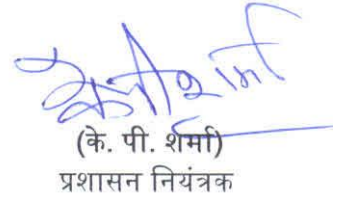 (के. पी. शर्मा)
प्रशासन नियंत्रक